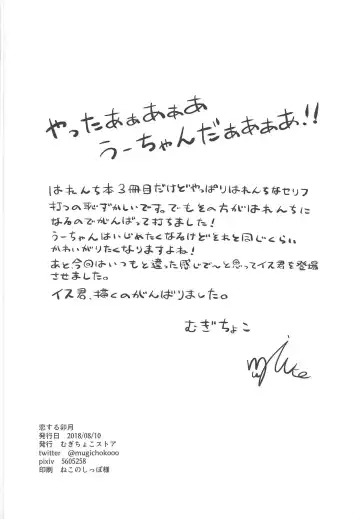 やったあぁあぁぁ
うーちゃんだぁぁぁぁ!!
はれんち本3冊目だけどやっぱりはれんちなセリフ
打つの恥ずかしいです。でもその方がはれんちに
なるのでがんばって打ちました!
うーちゃんはいじめたくなるけどそれと同じくらい
かわいがりたくなりますよね!
あと今回はいつもと違った感じで〜と思ってイス君を登場
させました。
イス君、描くのがんばりました。
むぎちょこ
恋する卯月
発行日 2018/08/10
発行 むぎちょこストア
twitter @mugichokooo
pixiv 5605258
印刷 ねこのしっぽ様